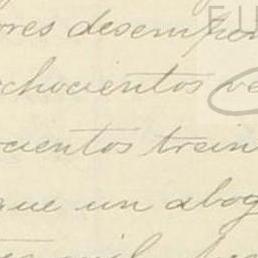 ores desempeñ
chocientos ve
cientos trein
que un abog